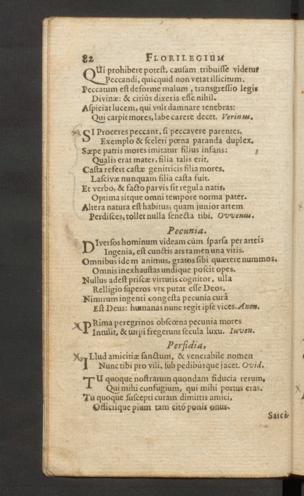 82 FLORILEGIUM
QUi prohibere potest, causam tribuisse videtur
Peccandi, quicquid non vetat illicitum.
Peccatum est deforme malum, transgressio legis
Divinæ: & citiùs dixeris esse nihil.
Aspiciat lucem, qui vult damnare tenebras:
Qui carpit mores, labe carere decet. Verinus.
SI Proceres peccant, si peccavere parentes,
Exemplo & sceleri pœna paranda duplex.
Sæpe patris mores imitatur filius infans:
Qualis erat mater, filia talis erit.
Casta refert castæ genitricis filia mores.
Lascivæ nunquam filia casta fuit.
Et verbo, & facto parvis sit regula natis,
Optima sitque omni tempore norma pater.
Altera natura est habitus; quam junior artem
Perdisces, tollet nulla senecta tibi. Ovvenus.
Pecunia.
DIversos hominum videam cùm sparsa per arteis
Ingenia, est cunctis ars tamen una viris.
Omnibus idem animus, gratos sibi quærere nummos,
Omnis inexhaustas undique poscit opes.
Nullus adest priscæ virtutis cognitor, ulla
Relligio superos vix putat esse Deos.
Nimirum ingenti congesta pecunia curâ
Est Deus: humanas nunc regit ipse vices. Anon.
PRima peregrinos obscœna pecunia mores
Intulit, & turpi fregerunt secula luxu. Iuven.
Perfidia.
ILlud amicitiæ sanctum, & venerabile nomen
Nunc tibi pro vili, sub pedibusque jacet. Ovid.
TU quoque nostrarum quondam fiducia rerum,
Qui mihi confugium, qui mihi portus eras.
Tu quoque suscepti curam dimittis amici,
Officiique pium tam citò ponis onus.
Sarci-